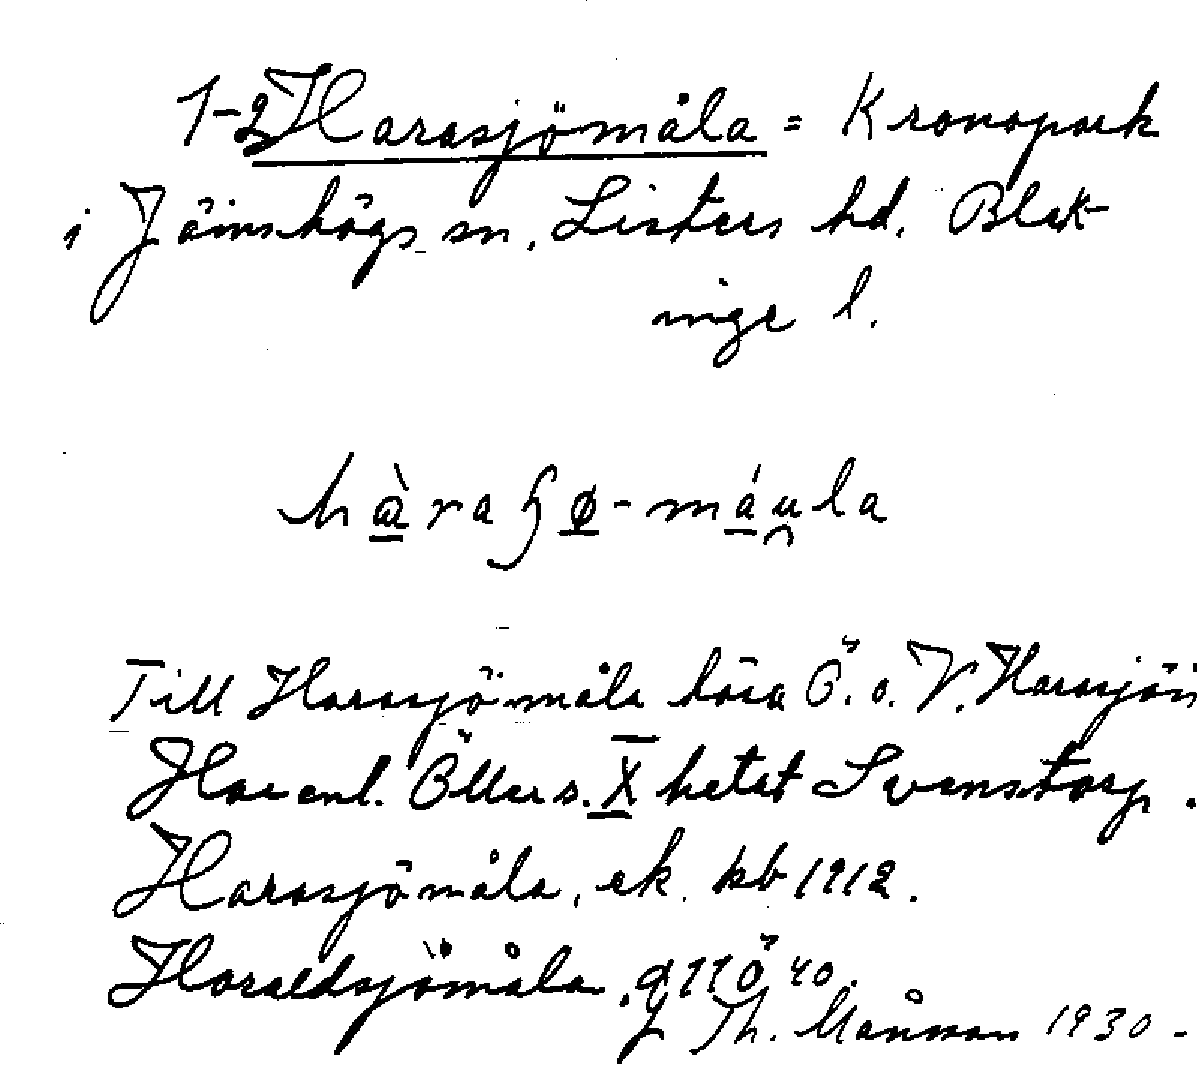 1-2 Harasjömåla = Kronopark
i Jämshögs sn, Listers hd. Blek-
inge l.
hàraʃø-máula
Till Harasjömåla höra Ö. o. V. Harasjön
Har enl. Öller s. X hetat Svenstorp.
Harasjömåla, ek. kb 1912.
Haraldsjömåla, g 11 Ö 40.
J Th. Månsson 1930.